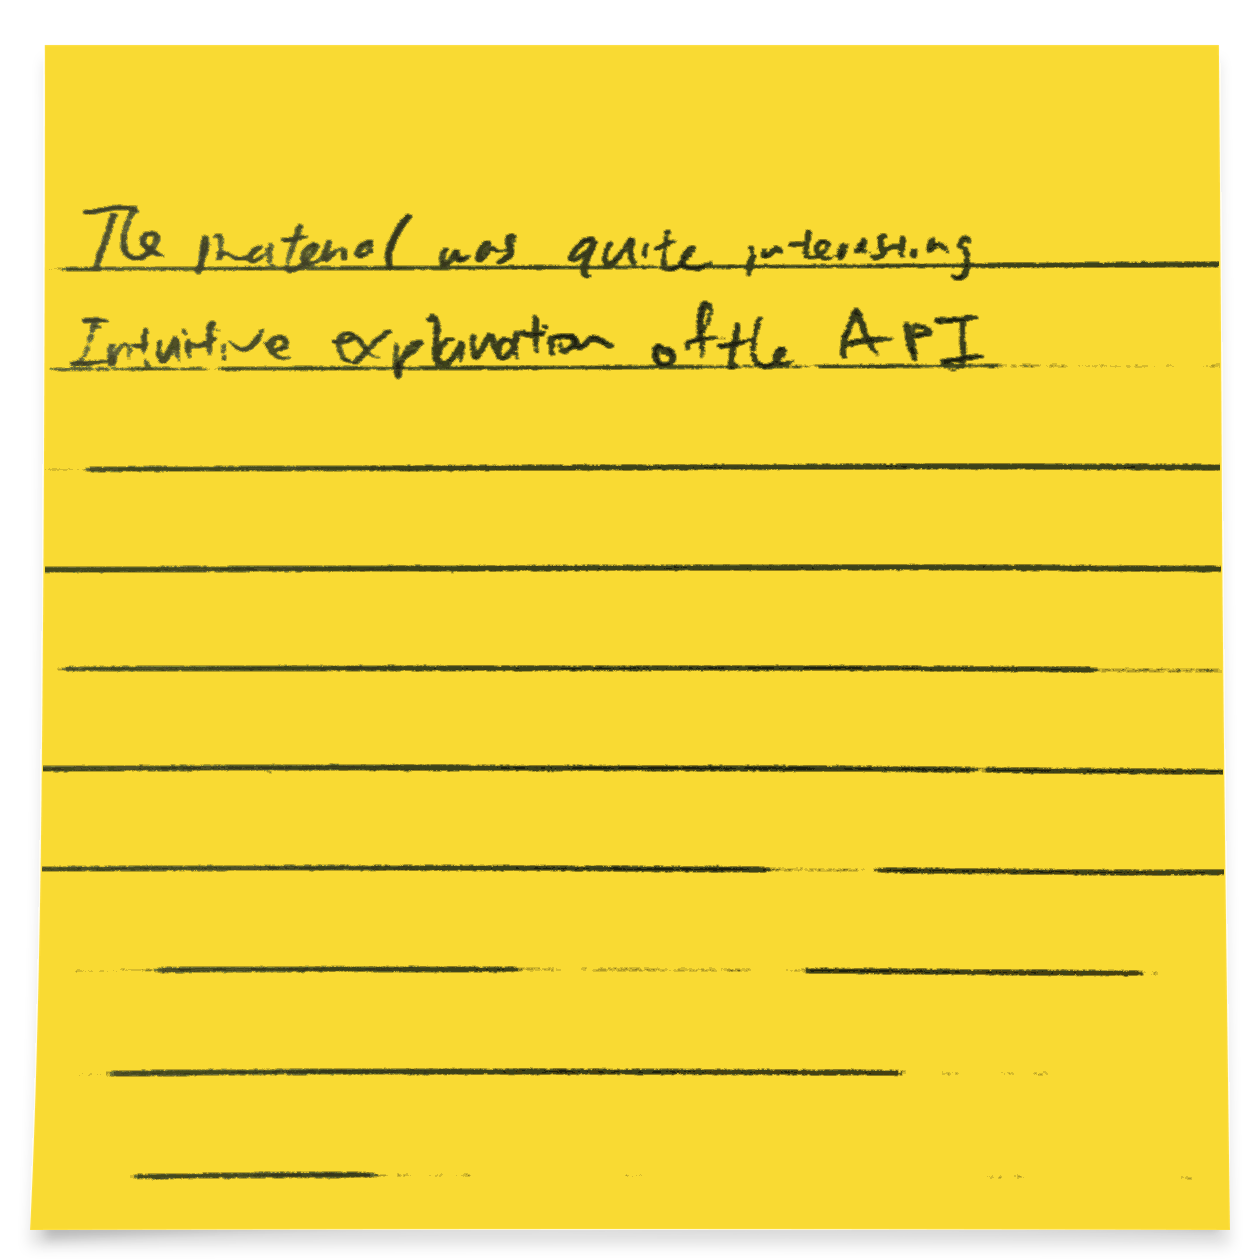 The material was quite interesting
Intuitive explanation of the API